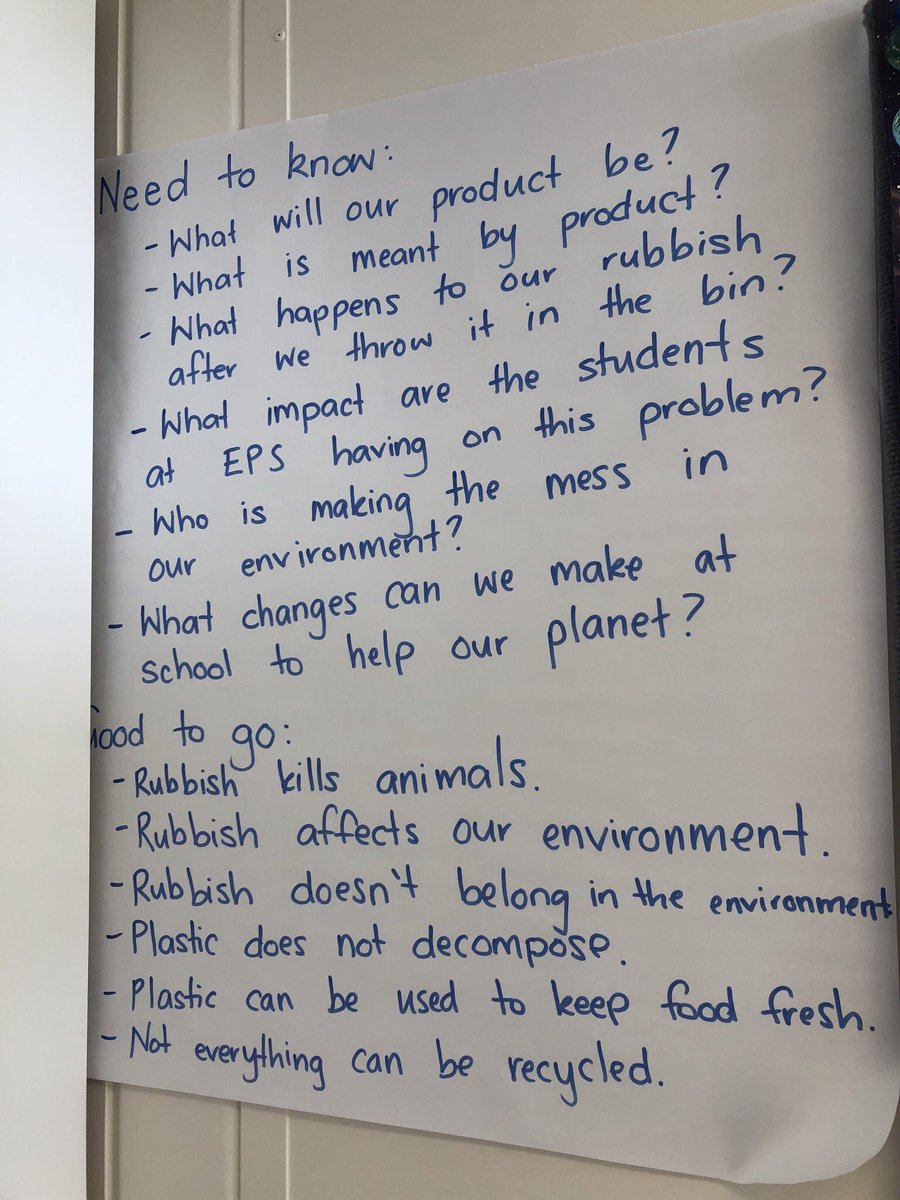 Need to know:
- What will our product be?
- What is meant by product?
- What happens to our rubbish
after we throw it in the bin?
- What impact are the students
at EPS having on this problem?
- Who is making the mess in
our environment?
- What changes can we make at
school to help our planet?
Good to go:
- Rubbish kills animals.
- Rubbish affects our environment.
- Rubbish doesn't belong in the environment
- Plastic does not decompose.
- Plastic can be used to keep food fresh.
- Not everything can be recycled.